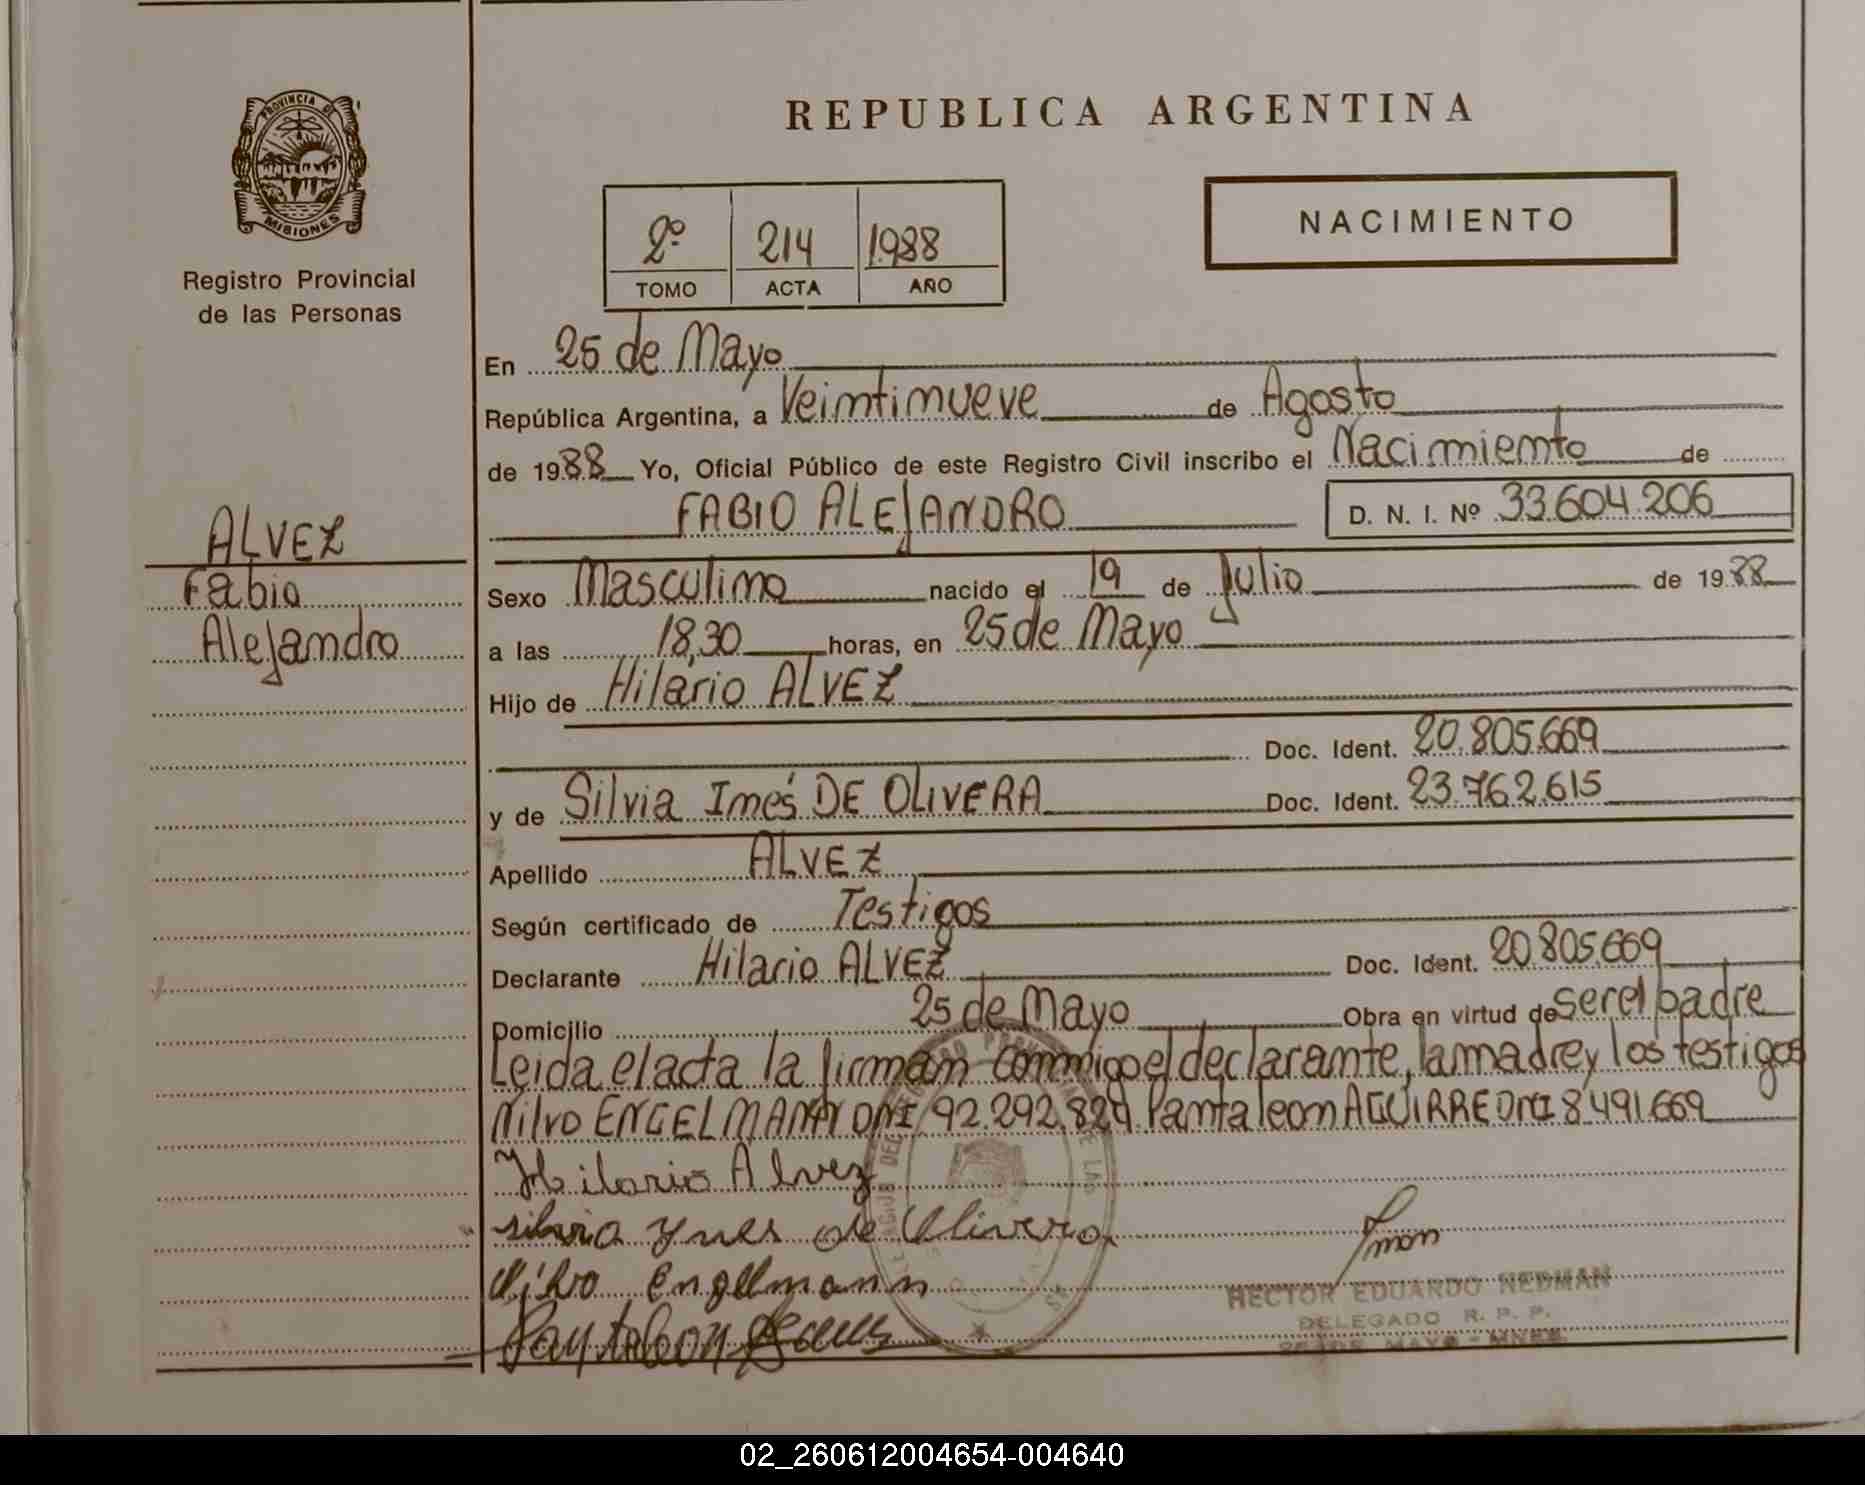 REPUBLICA ARGENTINA
PROVINCIA DE
MISIONES
Registro Provincial
de las Personas
2º 214 1988
TOMO ACTA AÑO
NACIMIENTO
En 25 de Mayo
República Argentina, a Veintinueve de Agosto
de 1988 Yo, Oficial Público de este Registro Civil inscribo el Nacimiento de
FABIO ALEJANDRO D. N. I. Nº 33.604.206
ALVEZ
Fabio
Alejandro
Sexo Masculino nacido el 19 de Julio de 1988
a las 18,30 horas, en 25 de Mayo
Hijo de Hilario ALVEZ
Doc. Ident. 20.805.669
y de Silvia Inés DE OLIVERA Doc. Ident. 23.762.615
Apellido ALVEZ
Según certificado de Testigos
Declarante Hilario ALVEZ Doc. Ident. 20.805.669
Domicilio 25 de Mayo Obra en virtud de ser el padre
Leida el acta la firman conmigo el declarante, la madre y los testigos
Nilvo ENGELMANN DNI 92.292.829 Pantaleon AGUIRRE DNI 8.491.669
Hilario Alvez
silvia ynes de Olivera
Nilvo Engelmann
Pantaleon
HECTOR EDUARDO HEDMAN
DELEGADO R. P. P.
25 DE MAYO - MNES
02_260612004654-004640